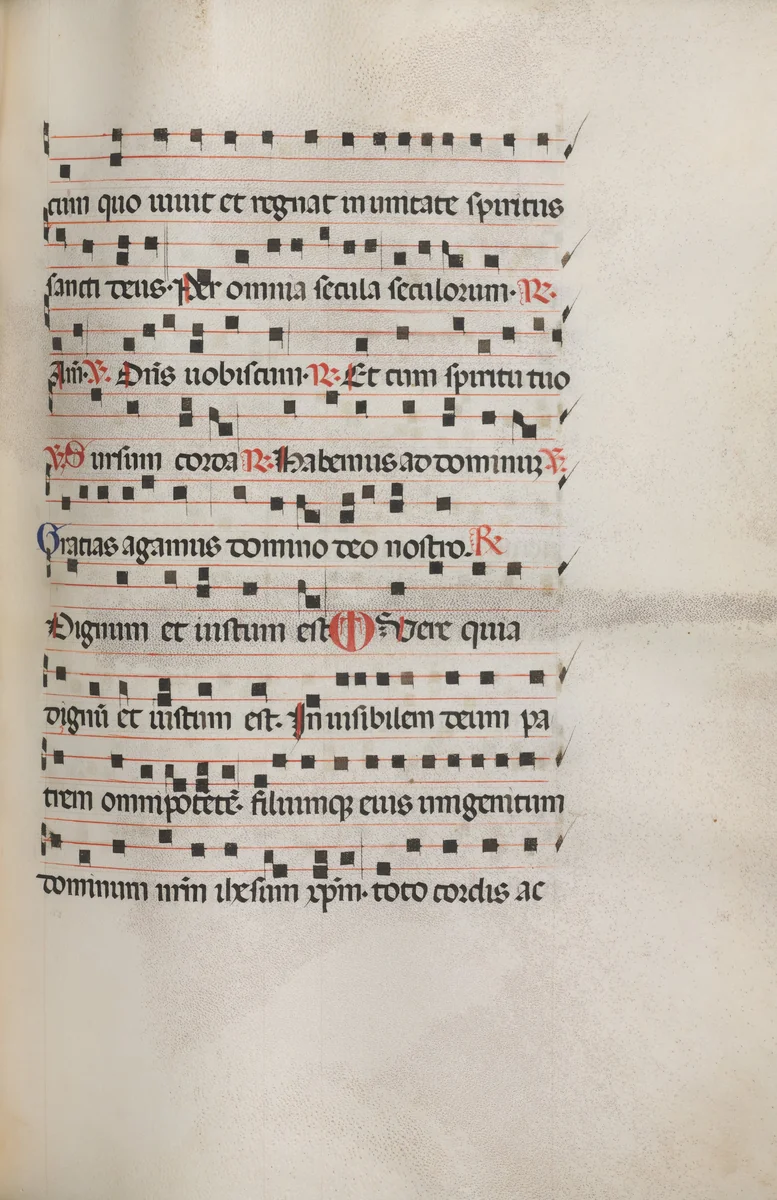 cum quo uiuit et regnat in unitate spiritus
sancti deus. Per omnia secula seculorum. R.
Am̄. V. Dn̄s uobiscum. R. Et cum spiritu tuo
V. Sursum corda R. Habemus ad dominuꝫ V.
Gratias agamus domino deo nostro. R
Dignum et iustum est Vere quia
dignū et iustum est. In uisibilem deum pa
trem omnipotētē. filiumqꝫ eius unigenitum
dominum nr̄m ihesum xp̄m. toto cordis ac